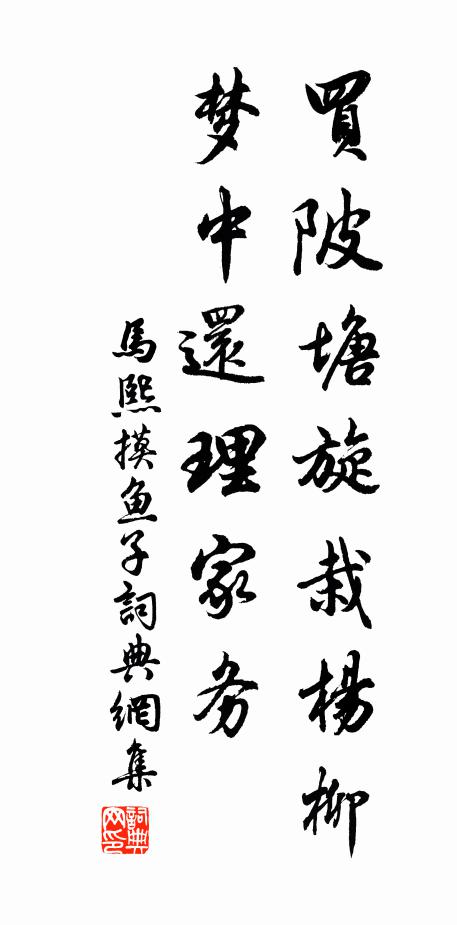 買陂塘旋栽楊柳
梦中還理家务
馬熙摸魚子詞典網集
詞典
网印